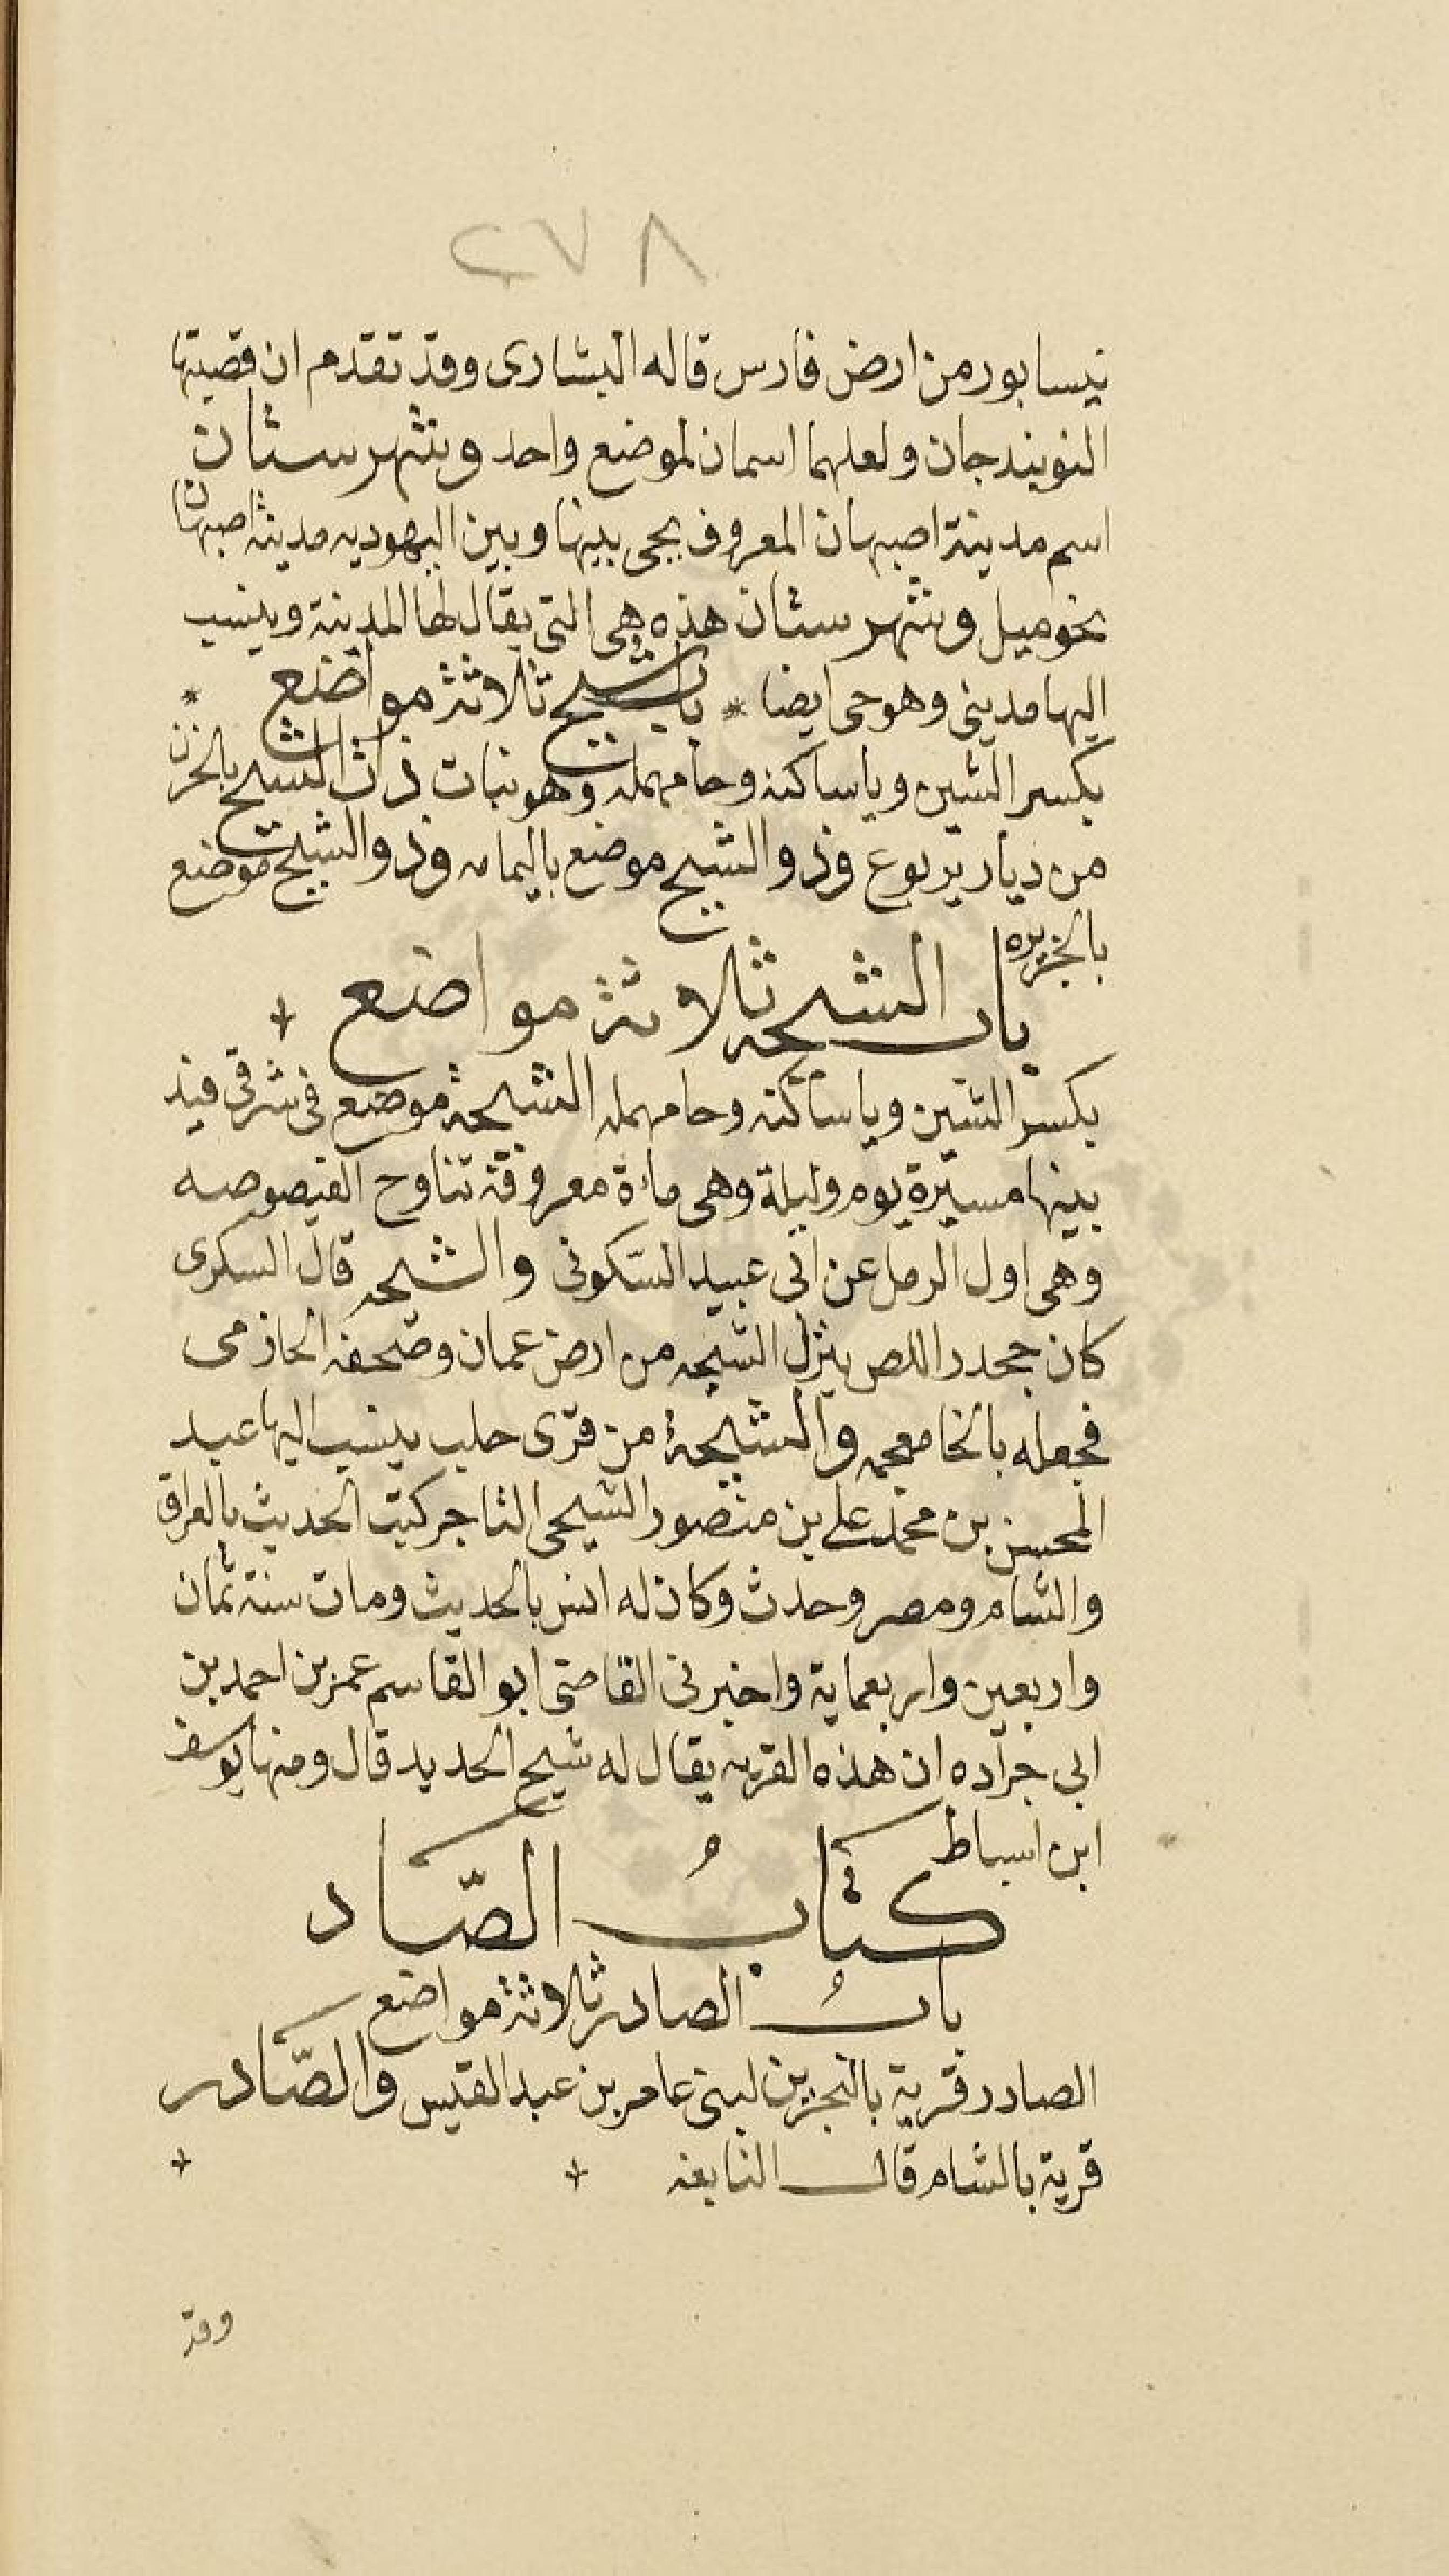 ٢٧٨
نيسابور من ارض فارس قاله البشارى وقد تقدم ان قصبتها
النوبندجان ولعلهما اسمان لموضع واحد وشهرستان
اسم مدينة اصبهان المعروف بجى بينها وبين اليهوديه مدينة اصبهان
نحو ميل وشهرستان هذه هى التى يقال لها المدينة وينسب
اليها مدينى وهو حى ايضا * باب شيح ثلاثة مواضع *
بكسر الشين وياساكنه وحا مهمله وهو نبات ذات الشيح بالحزن
من ديار يربوع وذو الشيح موضع باليمامه وذو الشيح موضع
بالجزيره
باب الشيحه ثلاثة مواضع
بكسر الشين وياساكنه وحا مهمله الشيحة موضع فى شرقى فيد
بينها مسيرة يوم وليلة وهى مائة معروفة تناوح القيصومه
وهى اول الرمل عن ابى عبيد السكونى والشيحه قال السكرى
كان جحدر اللص ينزل الشيحه من ارض عمان وصحفه الحازمى
فجعله بالخا معجمه والشيحة من قرى حلب ينسب اليها عبد
المحسن بن محمد على بن منصور الشيحى التاجر كتب الحديث بالعراق
والشام ومصر وحدث وكان له انس بالحديث ومات سنة ثمان
واربعين واربعماية واخبرنى القاضى ابو القاسم عمر بن احمد بن
ابى جراده ان هذه القريه يقال له شيح الحديد قال ومنها يوسف
ابن اسباط
كتابُ الصّاد
بابُ الصادر ثلاثة مواضع
الصادر قرية بالبحرين لبنى عامر بن عبد القيس والصّادر
قرية بالشام قال النابغه
وقد